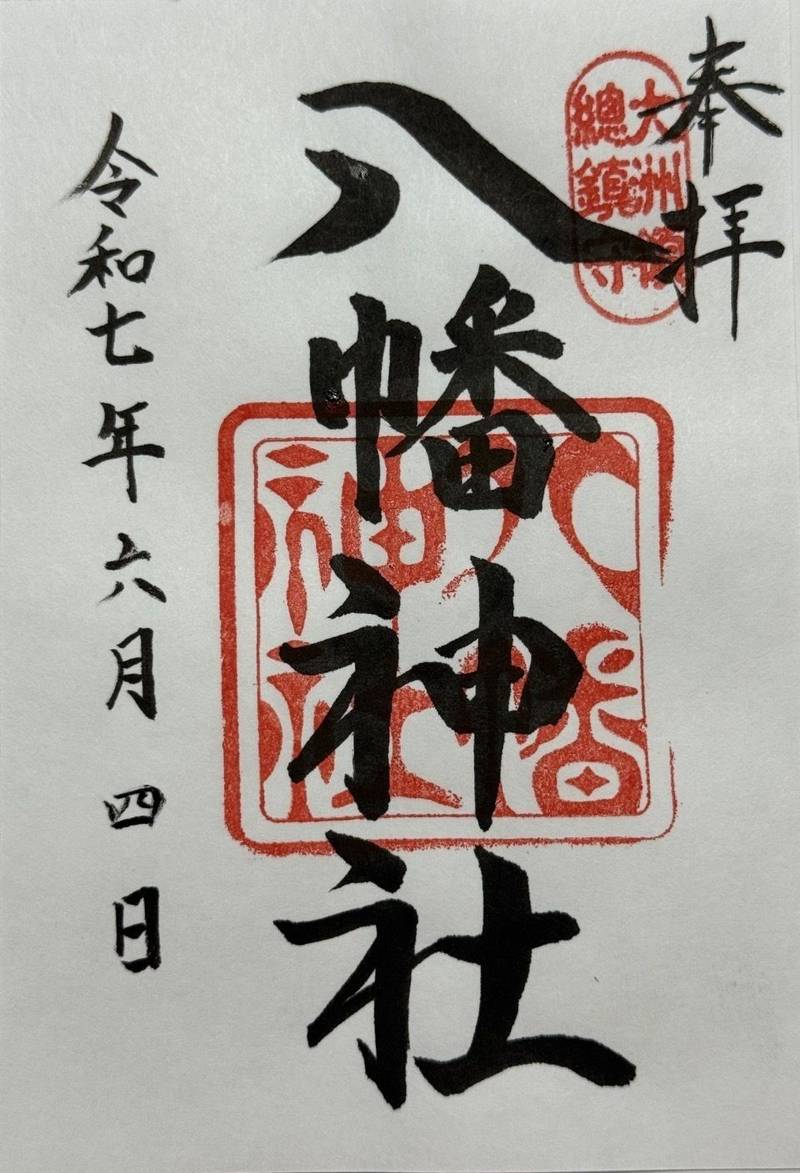 奉拝
大洲領
總鎮守
八幡神社
八幡
神社
令和七年六月四日